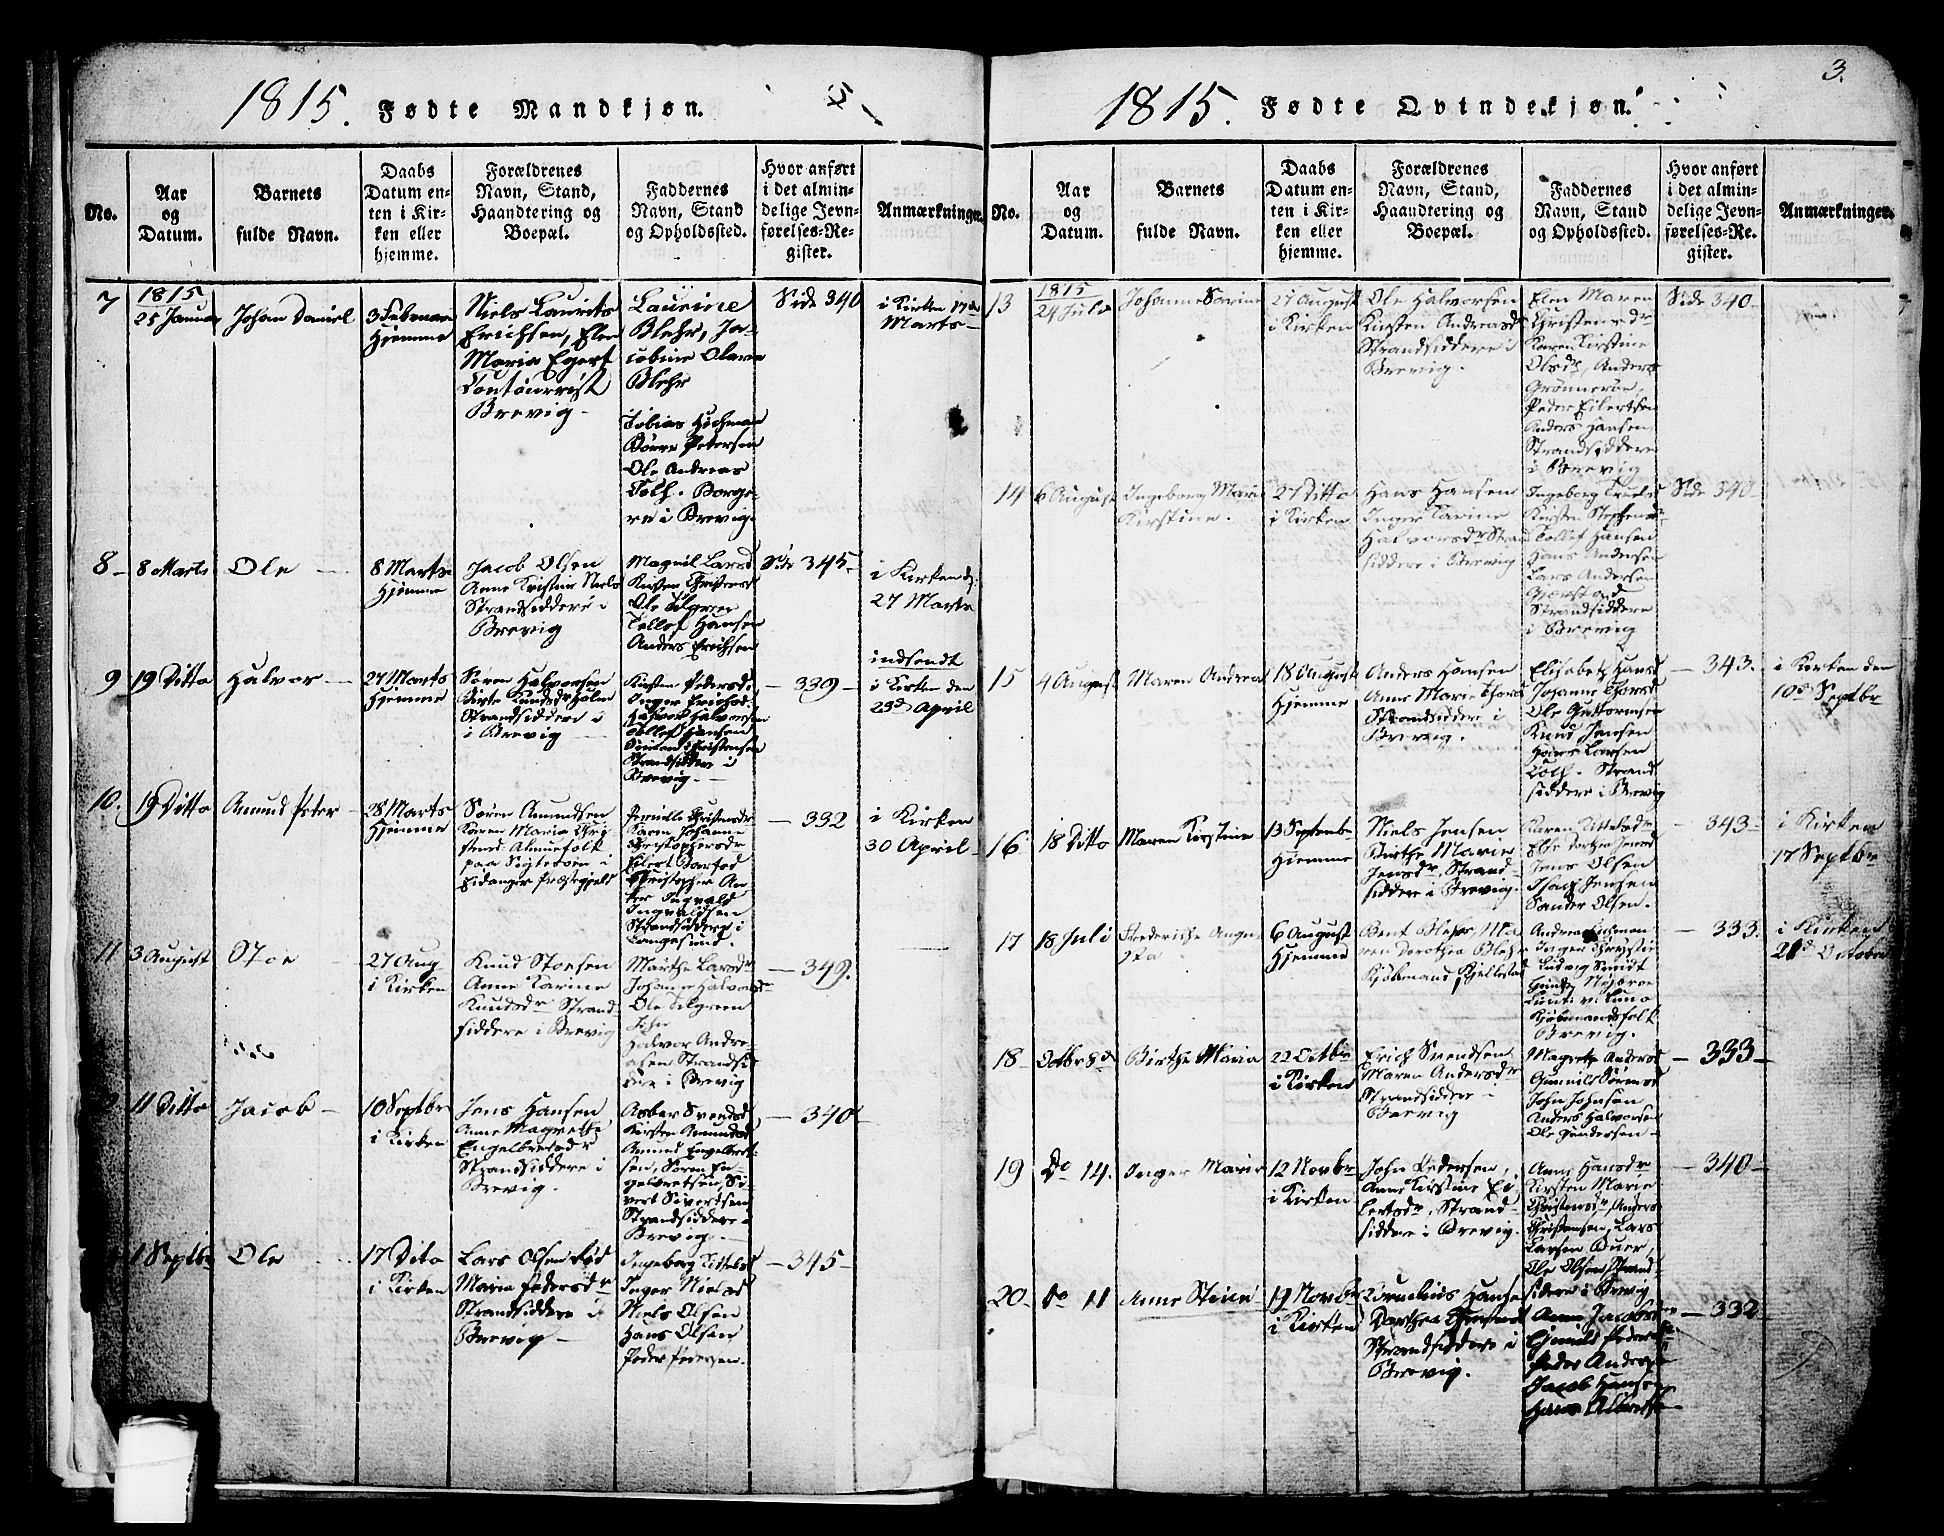 3.
1815. Fødte Mandkjøn.
No.
Aar
og
Datum.
Barnets
fulde Navn.
Daabs
Datum en-
ten i Kir-
ken eller
hjemme.
Forældrenes
Navn, Stand,
Haandtering og
Boepæl.
Faddernes
Navn, Stand
og Opholdssted.
Hvor anført
i det almin-
delige Jevn-
førelses-Re-
gister.
Anmærkninger.
7
1815
25 Januar
Johan Daniel
3 Februar
Hjemme
Niels Laurits
Erichsen, Elen
Maria Egert
Brevig
Laurine
Blehr, Ja-
cobine Olava
Blehr
Tobias Hichman
Børre Petersen
Ole Andreas
Toll. Borge-
re i Brevig
Side 340
i Kirken 17de
Marts
8
8 Marts
Ole
8 Marts
Hjemme
Jacob Olsen
Anne Kirstine Niels
Strandsiddere i
Brevig
Magnil Larsd
Kirsten Christensd
Ole Tilgreen
Tellef Hansen
Anders Erichsen
Side 345
i Kirken d:
27 Marts
9
19 Ditto
Halvor
27 Marts
Hjemme
Søren Halvorsen
Birte Knudsdr Holm
Strandsiddere i
i Brevig
Kirsten Pedersd:
Inger Erichsd:
Halvor Halvorsen
Tellef Hansen
Christensen
Strandsiddere i
Brevig.
339
indsendt
i Kirken den
23d April
10.
19 Ditto
Amund Peter
28 Marts
Hjemme
Søren Amundsen
Karen Maria Chri
stensd Almuefolk
paa Sigtesøen i
Eidanger Præstegjeld
Pernille Christensdr
Karen Johanne
Christophersdr
Eilert Barsod
Christopher An-
ker Ingvald
Ingvaldsen
Strandsiddere i
Langesund.
332
i Kirken
30 April
11
3 August
Stoe
27 Aug
i Kirken
Knud Stoesen
Anne Karine
Knudsdr Strand-
siddere i Brevig
Marthe Larsdr
Johanne Halvorsdr
Ole Tilgreen
John
Halvor Andre-
asen Strandsid
dere i Brevig
349.
11 Ditto
Jacob
10 Septbr
i Kirken
Jens Hansen
Anne Magrethe
Engelbretsdr
Strandsiddere i
Brevig.
Asber Svendsd
Kirsten Amundsd
Amund Engelbret-
sen, Søren En-
gelbretsen, Si-
vert Sivertsen
Strandsiddere i
Brevig.
340
1 Septbr
Ole
17 Dito
i Kirken
Lars Olsen Rød
Maria Pedersdr
Strandsiddere i
Brevig
Ingeborg Kittelsd
Inger Nielsd
Niels Olsen
Hans Olsen
Peder Pedersen.
345
1815. Fødte Qvindekjøn.
No.
Aar
og
Datum.
Barnets
fulde Navn.
Daabs
Datum en-
ten i Kir-
ken eller
hjemme.
Forældrenes
Navn, Stand,
Haandtering og
Boepæl.
Faddernes
Navn, Stand
og Opholdssted.
Hvor anført
i det almin-
delige Jevn-
førelses-Re-
gister.
Anmærkninger.
13
1815
24 Juli
Johanne Sørine
27 August
i Kirken
Ole Halvorsen
Kirsten Andreasd
Strandsiddere i
Brevig.
Elen Maren
Christensdr
Karen Kirstine
Olsdr, Anders
Grønneröe,
Peder Eilertsen
Anders Hansen
Strandsiddere
i Brevig
Side 340
14
6 August
Ingeborg Marie
Kirstine.
27 Ditto
i Kirken
Hans Hansen
Inger Karine
Halvorsdr Strand
siddere i Brevig
Ingeborg Truelsd
Kirsten Stephensdr
Tollef Hansen
Hans Andersen
Lars Andersen
Strandsiddere
i Brevig
Side 340
15
4 August
Maren Andrea
18 August
Hjemme
Anders Hansen
Anne Marie Thorsd
Strandsiddere i
Brevig.
Elisabeth Hansd
Johanne Thorsd
Ole Guttormsen
Knud Jensen
Hans Larsen
Toll. Strand
siddere i Brevig
343.
i Kirken den
10d Septbr
16
18 Ditto
Maren Kirstine
13 Septembr
Hjemme
Niels Jensen
Birthe Marie
Jensdr, Strand-
siddere i Brevig.
Karen Kittelsdr
Else Dorthea Jensd
Jens Olsen
Isach Jensen
Sander Olsen.
343
i Kirken
17 Septbr
17
18 Juli
Frederiche Augu-
sta
6 August
Hjemme
Bent Blehr, Ma-
ren Dorothea Blehr
Kjøbmand, Kjellestad
Andrea Hichman
Inger Chrystie
Ludvig Smidt
Kjøbmandsfolk
Brevig.
333.
i Kirken
21d October
18
Octbr 8d
Birthe Maria
22 Octbr
i Kirken
Erich Svendsen
Maren Andersdr
Strandsiddere i
Brevig
Magrete Andersd
Gunnild Sørensd
John Johnsen
Anders Halvorsen
Ole Gundersen
333
19
Do 14.
Inger Marie
12 Novbr
i Kirken
John Pedersen,
Anne Kirstine Ei
lertsdr, Strand-
siddere i Brevig.
Anne Hansdr
Kirsten Marie
Christensdr, Anders
Christensen, Lars
Larsen Auer,
Ole Olsen Strand-
siddere i Brevig
340
20
Do 11
Anne Steine
19 Novbr
i Kirken
Cornelius Hanse
Dorthea Christensd
Strandsiddere i
Brevig.
Anne Jacobsd
Gunild Pedersd
Peder Andersen
Jacob Hansen
Hans Albretse
332